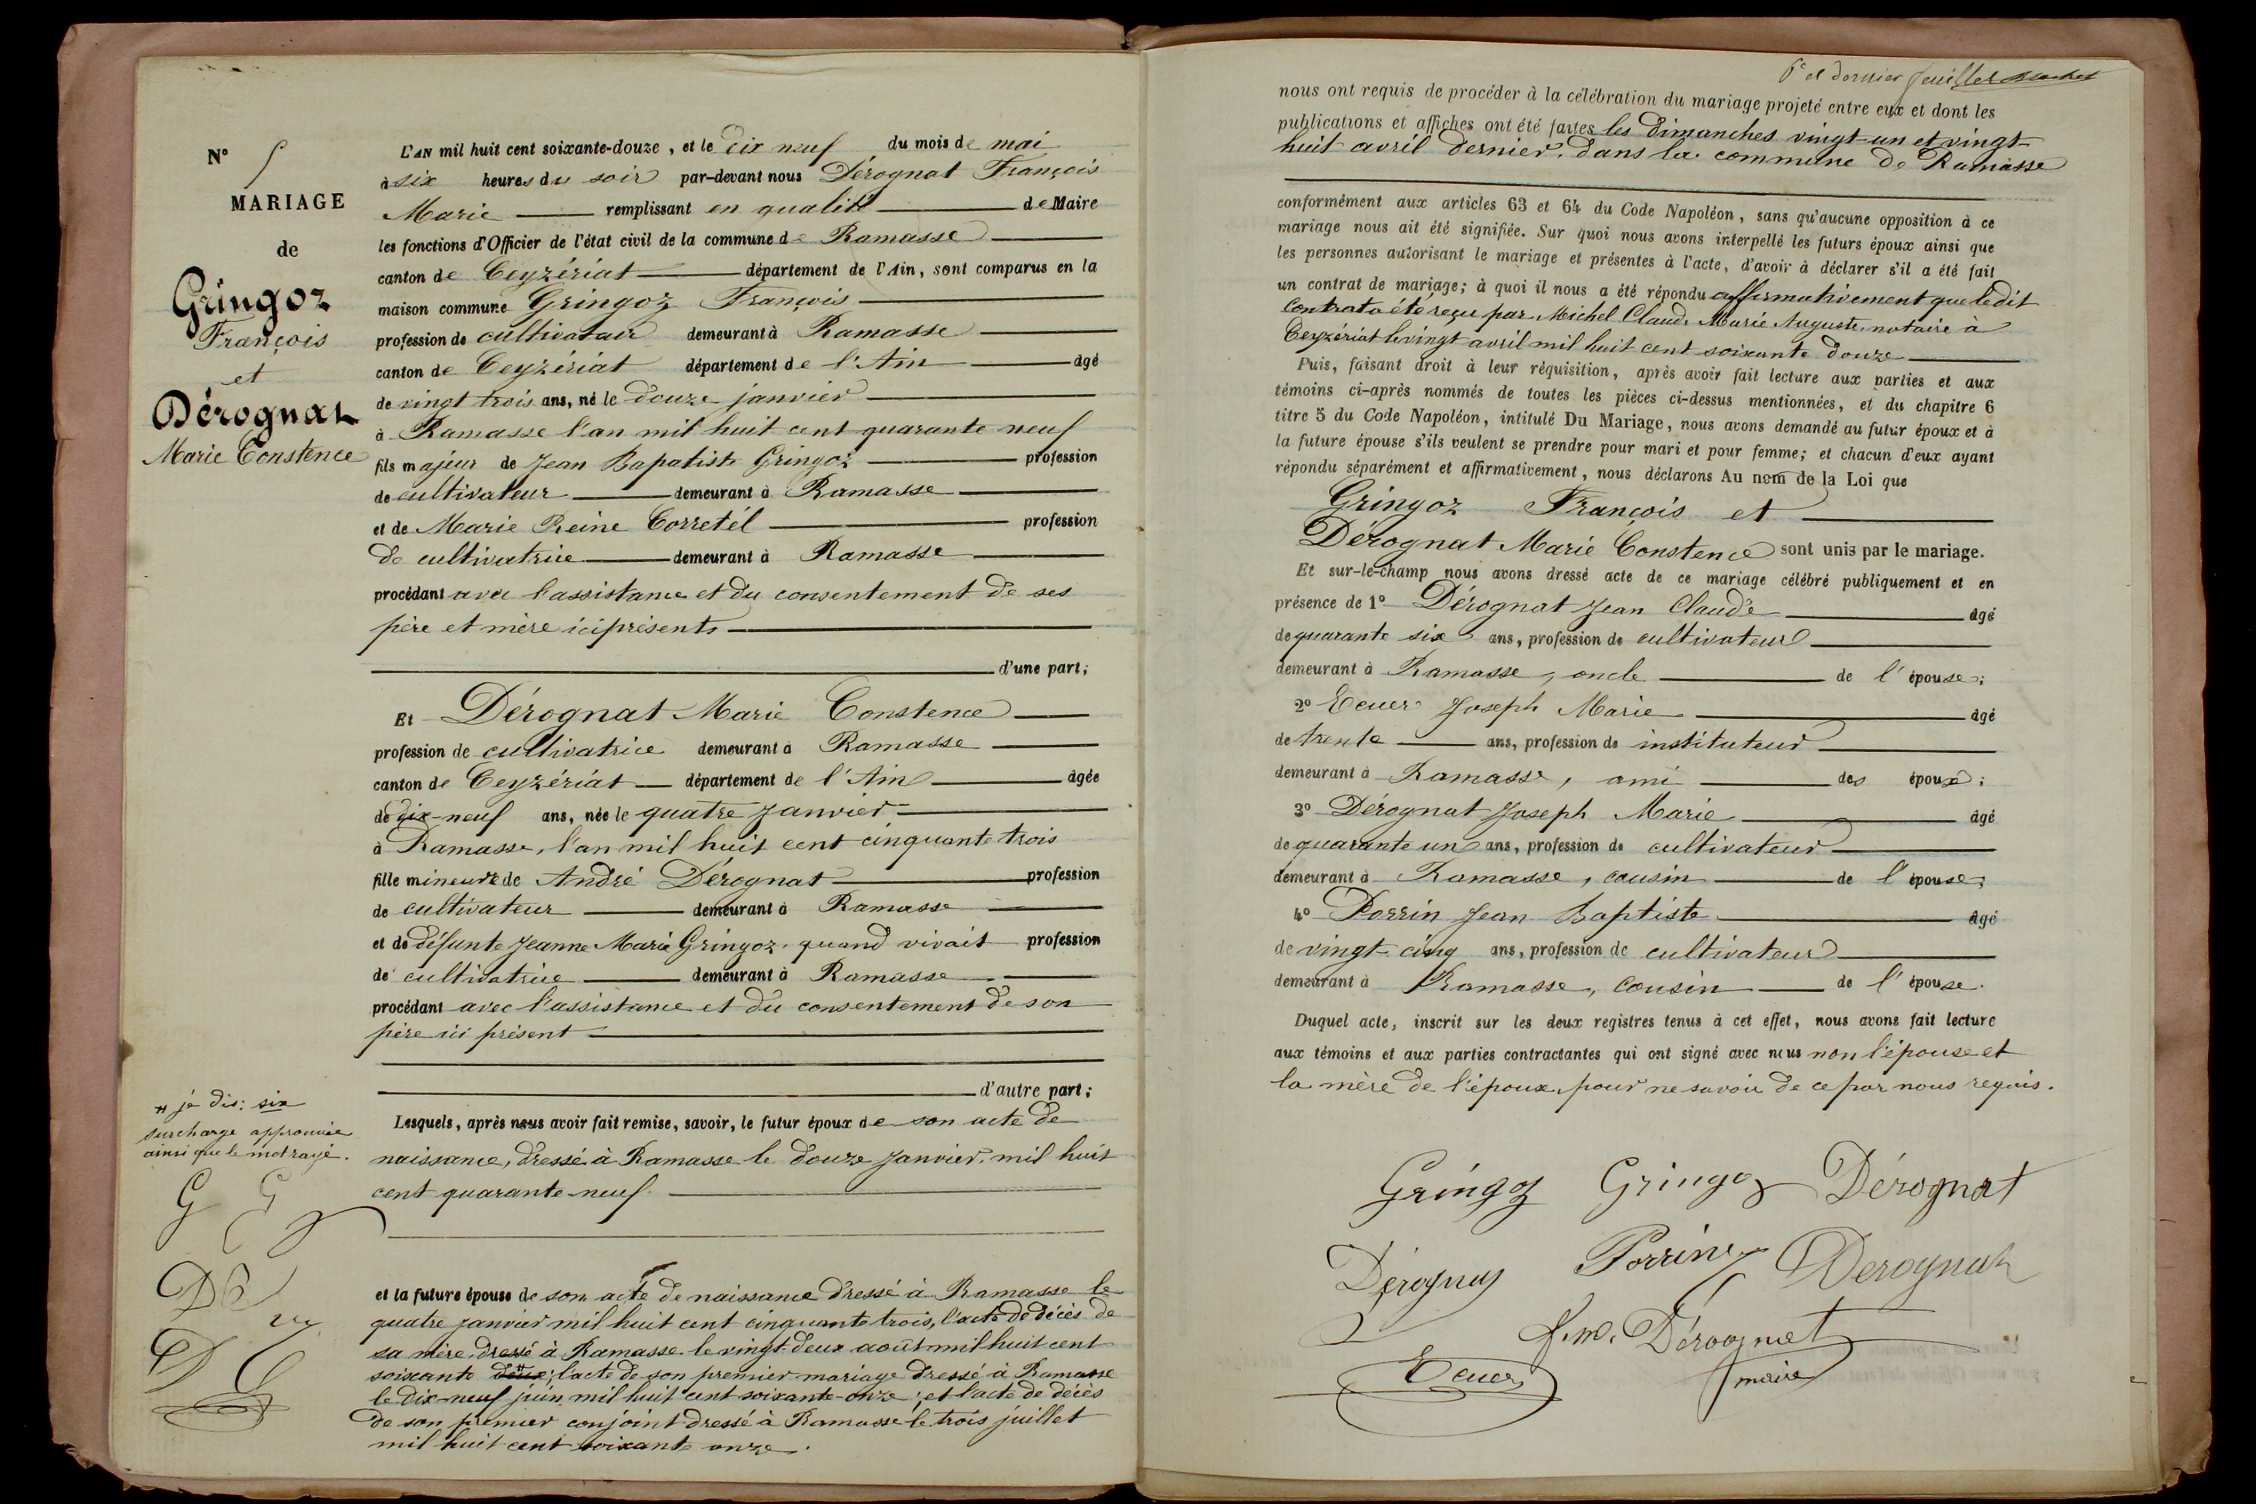 N° 5
MARIAGE
de
Gringoz
François
et
Dérognat
Marie Constence
# je dis: six
surcharge approuvée
ainsi que le mot rayé.
L'AN mil huit cent soixante-douze, et le dix neuf du mois de mai
à six heures du soir par-devant nous Dérognat François
Marie remplissant en qualité de Maire
les fonctions d'Officier de l'état civil de la commune de Ramasse
canton de Ceyzériat département de l'Ain, sont comparus en la
maison commune Gringoz François
profession de cultivateur demeurant à Ramasse
canton de Ceyzériat département de l'Ain âgé
de vingt trois ans, né le douze janvier
à Ramasse l'an mil huit cent quarante neuf
fils majeur de Jean Bapatiste Gringoz profession
de cultivateur demeurant à Ramasse
et de Marie Reine Corretél profession
de cultivatrice demeurant à Ramasse
procédant avec l'assistance et du consentement de ses
père et mère ici présents
d'une part;
Et Dérognat Marie Constence
profession de cultivatrice demeurant à Ramasse
canton de Ceyzériat département de l'Ain âgée
de dix-neuf ans, née le quatre janvier
à Ramasse, l'an mil huit cent cinquante trois
fille mineure de André Dérognat profession
de cultivateur demeurant à Ramasse
et de défunte Jeanne Marie Gringoz quand vivait profession
de cultivatrice demeurant à Ramasse
procédant avec l'assistance et du consentement de son
père ici présent
d'autre part;
Lesquels, après nous avoir fait remise, savoir, le futur époux de son acte de
naissance, dressé à Ramasse le douze janvier mil huit
cent quarante neuf.
et la future épouse de son acte de naissance dressé à Ramasse le
quatre janvier mil huit cent cinquante trois, l'acte de décès de
sa mère, dressé à Ramasse le vingt deux août mil huit cent
soixante deux #; l'acte de son premier mariage dressé à Ramasse
le dix-neuf juin mil huit cent soixante-onze; et l'acte de décès
de son premier conjoint dressé à Ramasse le trois juillet
mil huit cent soixante onze.
6e et dernier feuillet
nous ont requis de procéder à la célébration du mariage projeté entre eux et dont les
publications et affiches ont été faites les dimanches vingt-un et vingt-
huit avril dernier, dans la commune de Ramasse
conformément aux articles 63 et 64 du Code Napoléon, sans qu'aucune opposition à ce
mariage nous ait été signifiée. Sur quoi nous avons interpellé les futurs époux ainsi que
les personnes autorisant le mariage et présentes à l'acte, d'avoir à déclarer s'il a été fait
un contrat de mariage; à quoi il nous a été répondu affirmativement que ledit
contrat a été reçu par Michel Claude Marie Auguste, notaire à
Ceyzériat le vingt avril mil huit cent soixante douze
Puis, faisant droit à leur réquisition, après avoir fait lecture aux parties et aux
témoins ci-après nommés de toutes les pièces ci-dessus mentionnées, et du chapitre 6
titre 5 du Code Napoléon, intitulé Du Mariage, nous avons demandé au futur époux et à
la future épouse s'ils veulent se prendre pour mari et pour femme; et chacun d'eux ayant
répondu séparément et affirmativement, nous déclarons Au nom de la Loi que
Gringoz François et
Dérognat Marie Constence sont unis par le mariage.
Et sur-le-champ nous avons dressé acte de ce mariage célébré publiquement et en
présence de 1° Dérognat Jean Claude âgé
de quarante six ans, profession de cultivateur
demeurant à Ramasse, oncle de l'épouse;
2° Ecuer Joseph Marie âgé
de trente ans, profession de instituteur
demeurant à Ramasse, ami des époux;
3° Dérognat Joseph Marie âgé
de quarante un ans, profession de cultivateur
demeurant à Ramasse, cousin de l'épouse;
4° Porrin Jean Baptiste âgé
de vingt-cinq ans, profession de cultivateur
demeurant à Ramasse, cousin de l'épouse.
Duquel acte, inscrit sur les deux registres tenus à cet effet, nous avons fait lecture
aux témoins et aux parties contractantes qui ont signé avec nous non l'épouse et
la mère de l'époux, pour ne savoir de ce par nous requis.
Gringoz Gringoz Dérognat
Dérognat Porrin Derognat
f. m. Dérognat
Ecuer maire